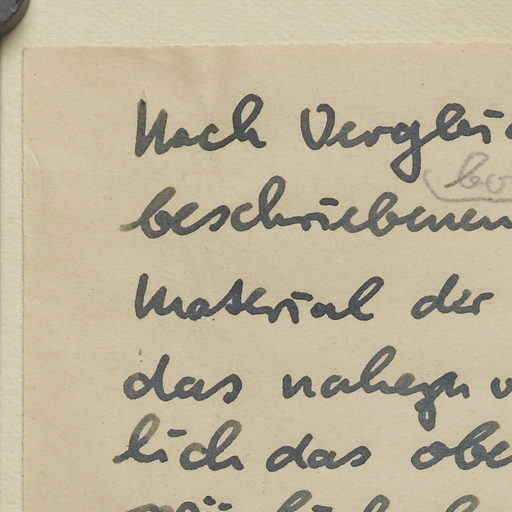 Nach Verglei
bo
beschriebenen
Material der
das nahezu v
lich das obe